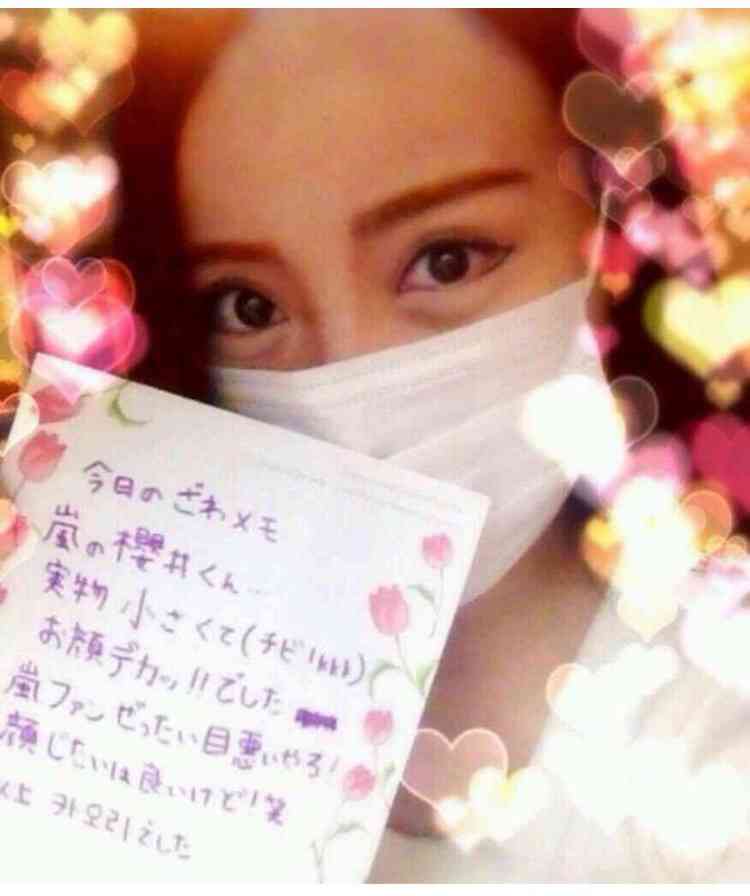 今日のざわメモ
嵐の櫻井くん…
実物 小さくて(チビ!kkk)
お顔デカッ!!でした
嵐ファンぜったい目悪いやろ!
顔じたいは良いけど!笑
以上 カオリでした